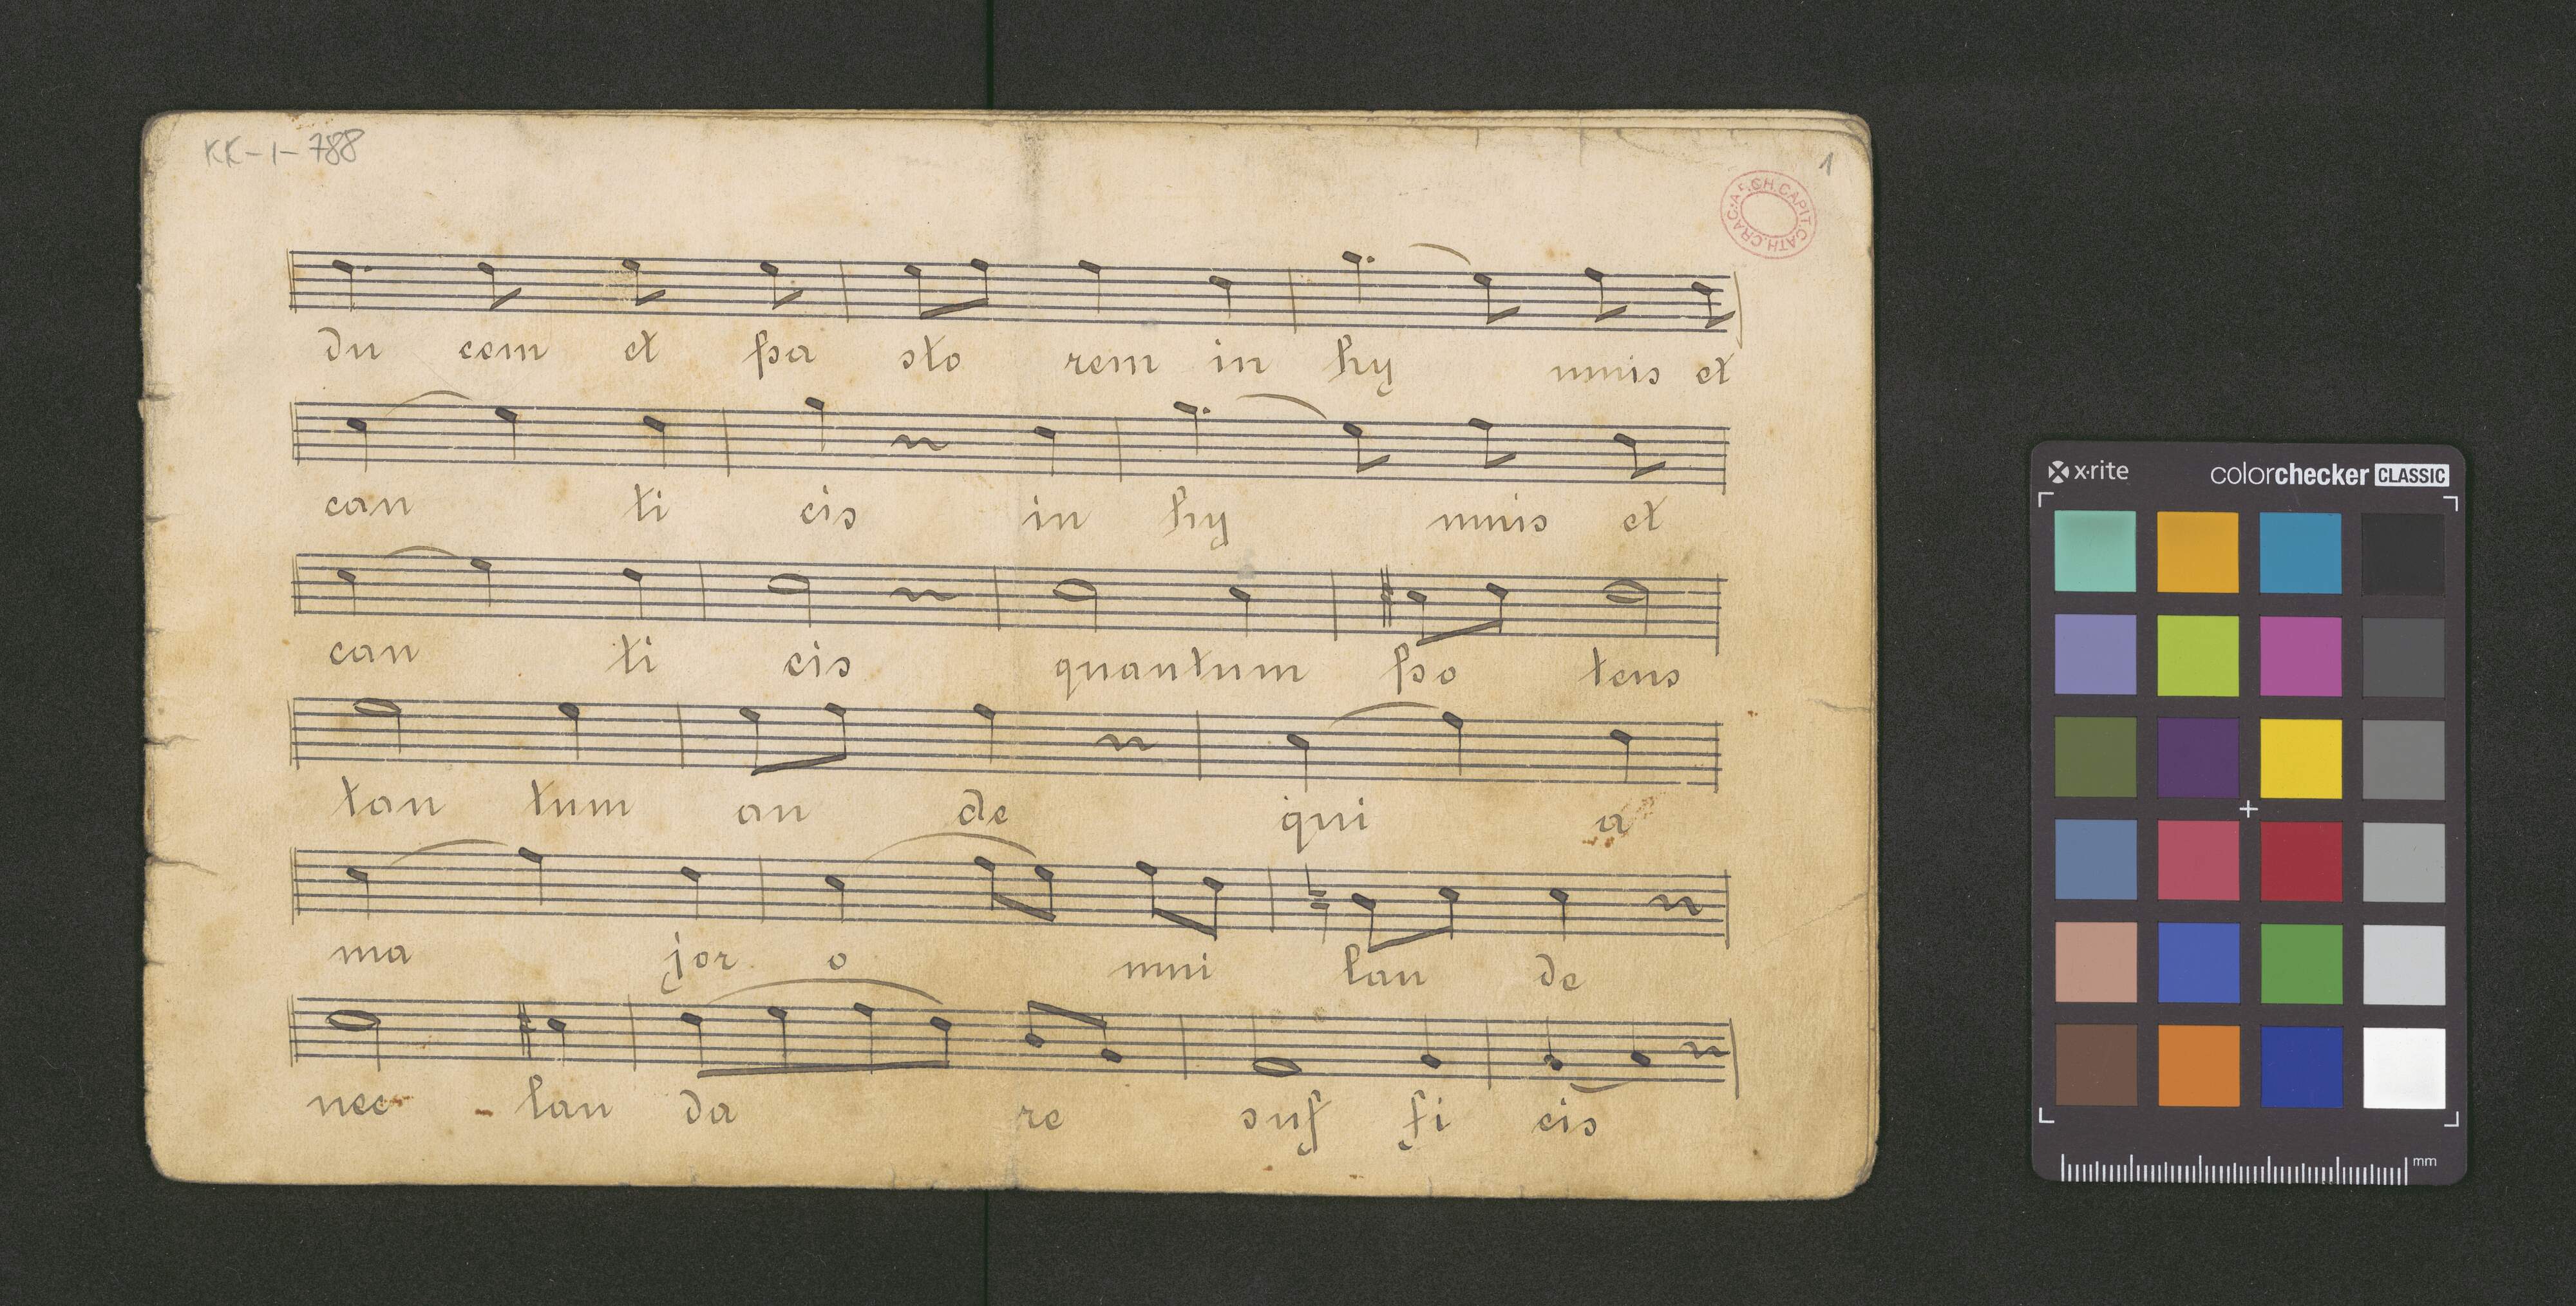 KK-1-788
1
ARCH.CAPIT.CATH.CRAC.
du cem et pa sto rem in hy mnis et
can ti cis in hy mnis et
can ti cis quantum po tens
tan tum au de qui a
ma jor o mni lau de
nec - lau da re suf fi cis
x-rite
colorchecker CLASSIC
mm